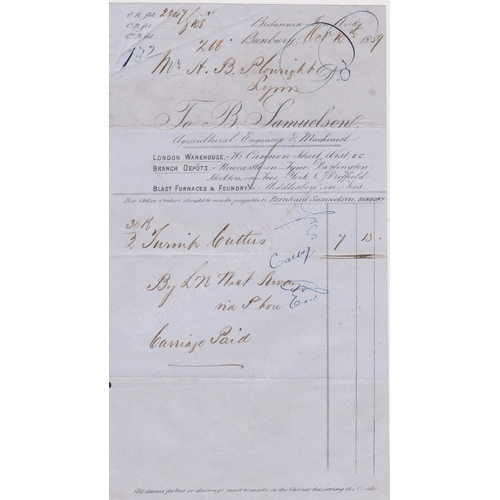 Britannia Works
Banbury, Oct 12th 1859
Mr A. B. Plowright
Lynn
To B. Samuelson,
Agricultural Engineer & Machinist
LONDON WAREHOUSE,-76 Cannon Street, West, E.C.
BRANCH DEPÔTS,-Newcastle on Tyne, Darlington,
Stockton on Tees, York & Driffield.
BLAST FURNACES & FOUNDRY,-Middlesbro' on Tees.
Post Office Orders should be made payable to Bernhard Samuelson, BANBURY
2 Turnip Cutters 7 13 -
By L N West Rway
Carriage Paid
All claims for loss or damage must be made on the Carrier delivering the Goods